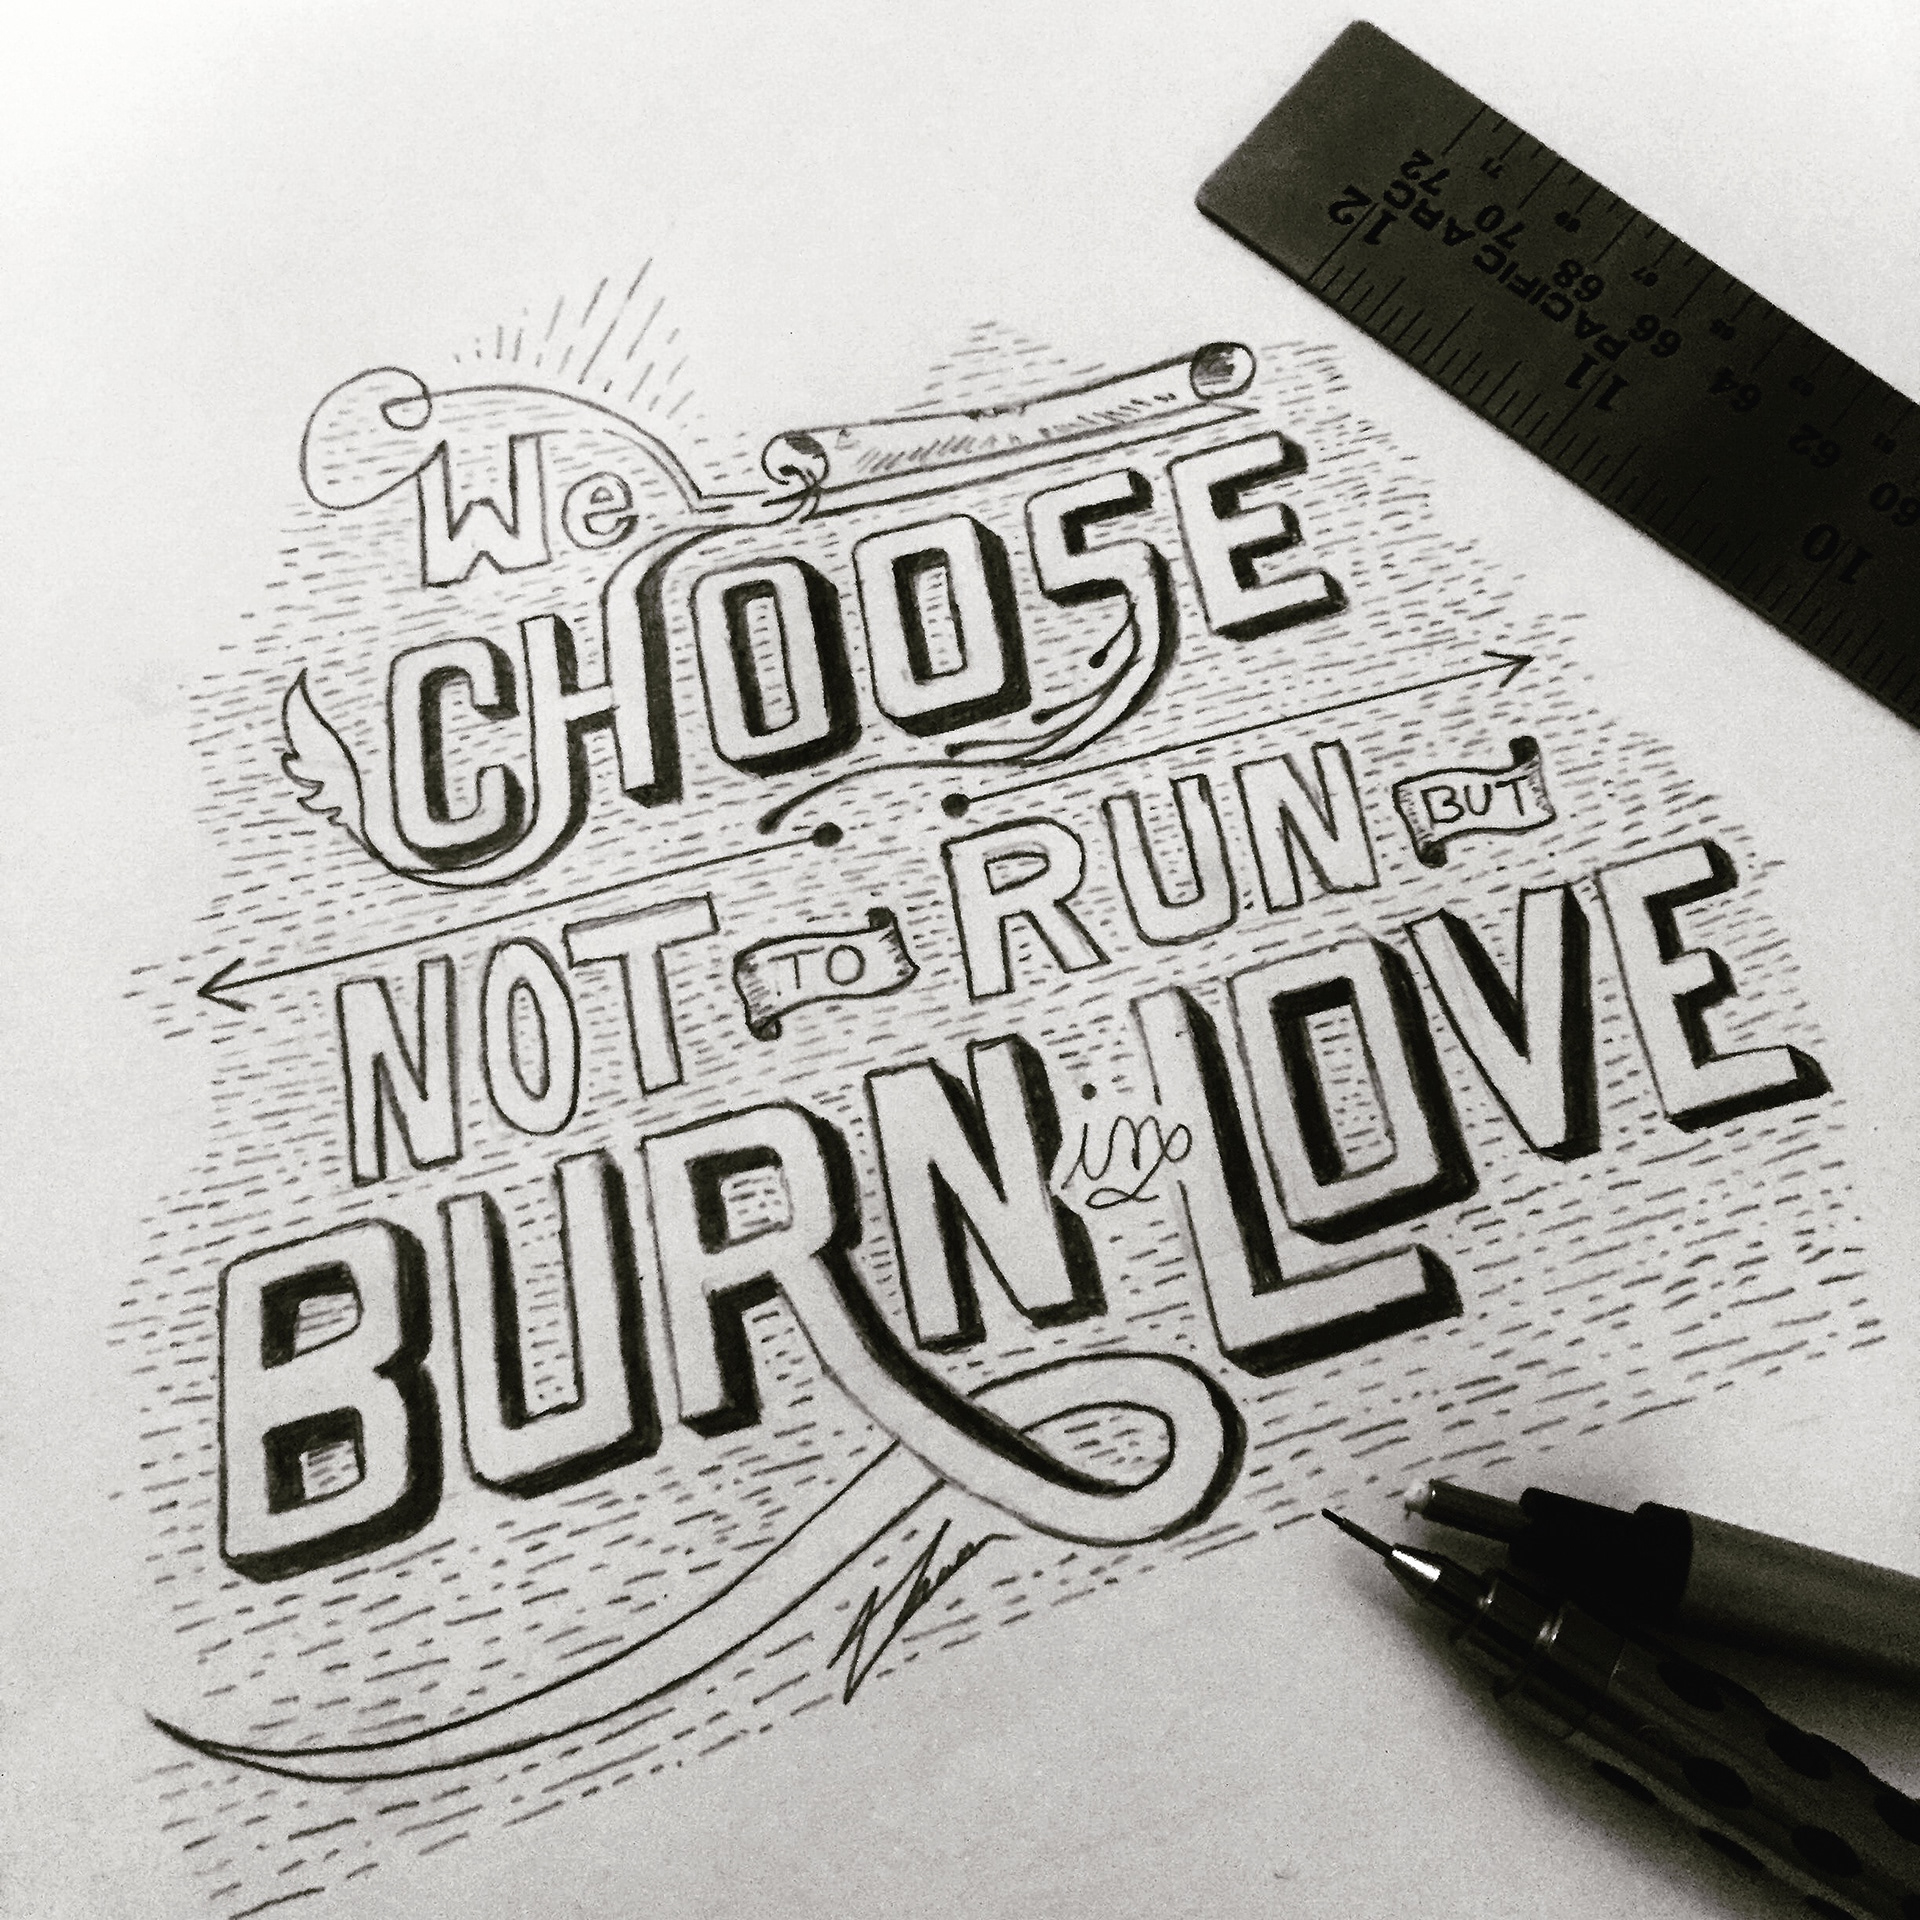 We
CHOOSE
NOT TO RUN BUT
BURN in LOVE
12 11 10
PACIFIC ARC
72 70 68 66 64 62 60